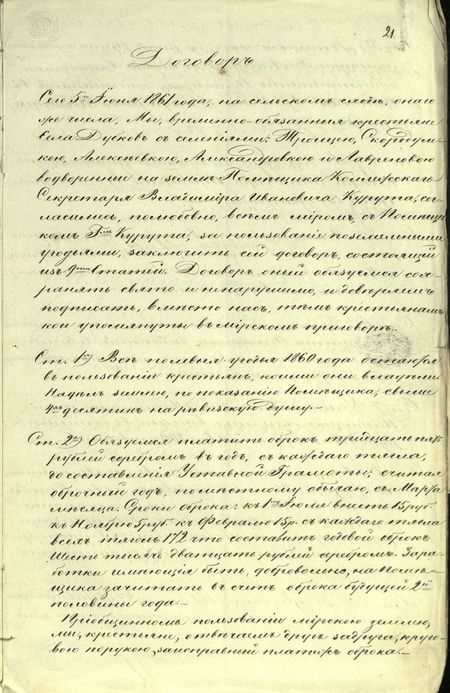 21.
Договоръ
Сего 5го Іюня 1861 года, на сельскомъ сходѣ, онаго
же числа, Мы, временно-обязанныя крестьяне
Села Дубковъ съ селеніями: Троицею, Скородум-
кою, Алексѣевкою, Александровкою и Лавреновою
водворенные на землѣ Помѣщика Коллежскаго
Секретаря Владиміра Ивановича Курута, со-
гласились, полюбовно, всѣмъ міромъ, съ Помѣщи-
комъ Гмъ Курута, за пользованіе поземельными
угодьями, заключить сей договоръ, состоящій
изъ статей. Договоръ оный обязуемся сох-
ранять свято и ненарушимо, и довѣряемъ
подписать, вмѣсто насъ, тѣмъ крестьянамъ
кои упомянуты въ мірскомъ приговорѣ.
Ст. 1я) Всѣ полевыя угодья 1860 года остаются
въ пользованіи крестьянъ, коими они владѣли
Надѣлъ землею, по показанію Помѣщика, свыше
4хъ десятинъ на ревизскую душу.-
Ст. 2я) Обязуемся платить оброкъ тридцать пять
рублей серебромъ въ годъ, съ каждаго тягла,
до составленія Уставной Грамоты; считая
оброчный годъ, по мѣстному обычаю, съ Марта
мѣсяца. Сроки оброка: къ 1му Іюля внесть 15 руб.
къ Ноябрю 5 руб. къ Февралю 15 р. съ каждаго тягла
всѣхъ тяголъ 172 что составитъ годовой оброкъ
Шесть тысячъ двадцать рублей серебромъ. Зара-
ботки имѣющія быть, добровольно, на Помѣ-
щика зачитать въ счетъ оброка будущей 2й
половины года.-
При общинномъ пользованіи мірскою землею,
мы, крестьяне, отвѣчаемъ другъ за друга, круго-
вою порукою, за исправный платежъ оброка.-